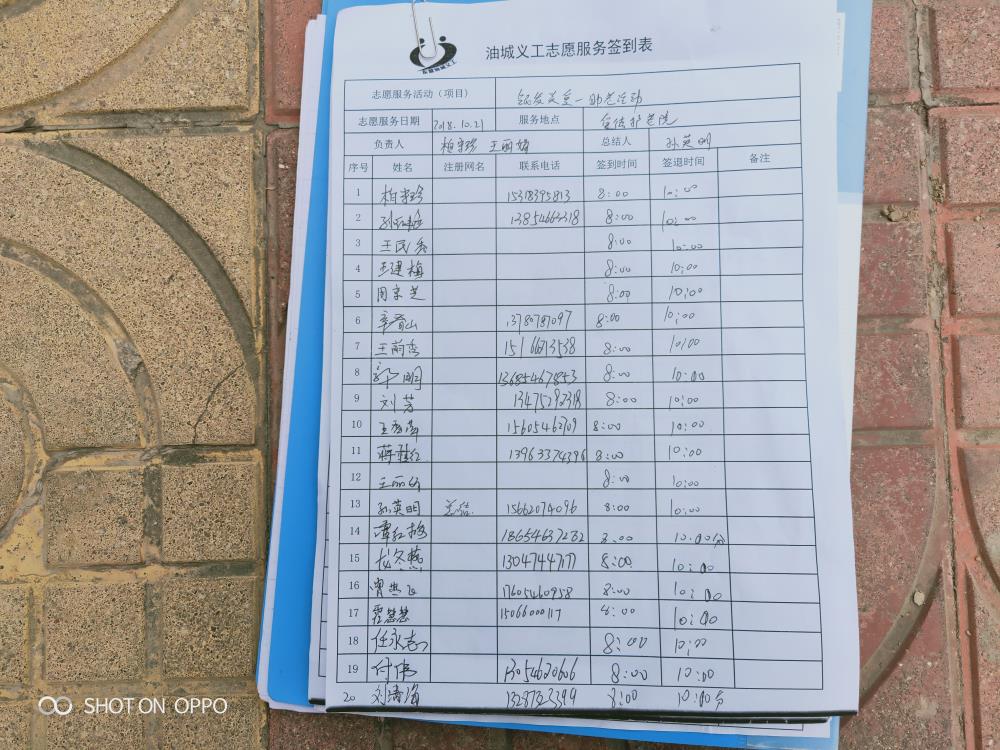 油城义工志愿服务签到表
志愿服务活动（项目）
志愿服务日期 2018.10.21 服务地点
负责人 总结人 孙英明
序号 姓名 注册网名 联系电话 签到时间 签退时间 备注
1 15318395813 8:00 10:00
2 13854663318 8:00 10:00
3 王民秀 8:00 10:00
4 王建梅 8:00 10:00
5 周京芝 8:00 10:00
6 13780787097 8:00 10:00
7 8:00 10:00
8 13685467853 8:00 10:00
9 刘芳 13475292318 8:00 10:00
10 15605462709 8:00 10:00
11 13963374396 8:00 10:00
12 8:00 10:00
13 孙英明 15662074096 8:00 10:00
14 谭红梅 18654637232 8:00 10:00分
15 龙冬燕 13047447177 8:00 10:00
16 17605460958 8:00 10:00
17 霍慧慧 15066000117 8:00 10:00
18 任永志 8:00 10:00
19 付伟 13054620606 8:00 10:00
20 刘清海 13287323399 8:00 10:00分
SHOT ON OPPO